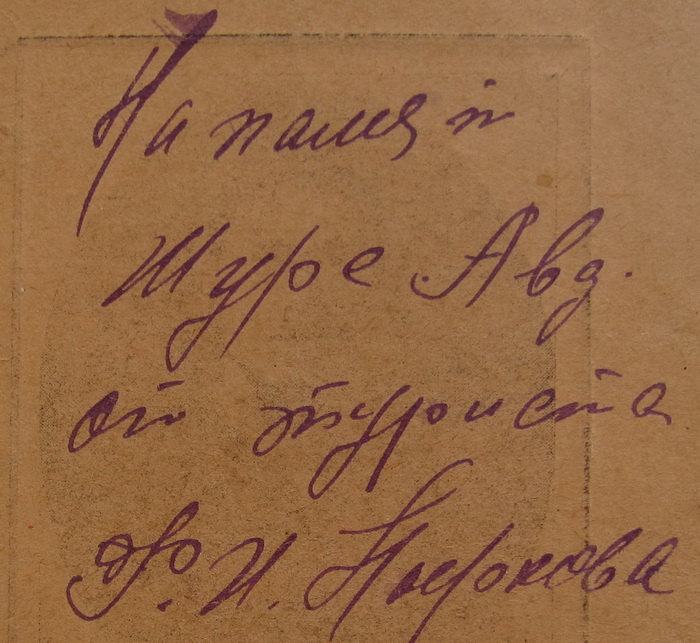 На память
Шуре Авд.
от туриста
Ф. И.